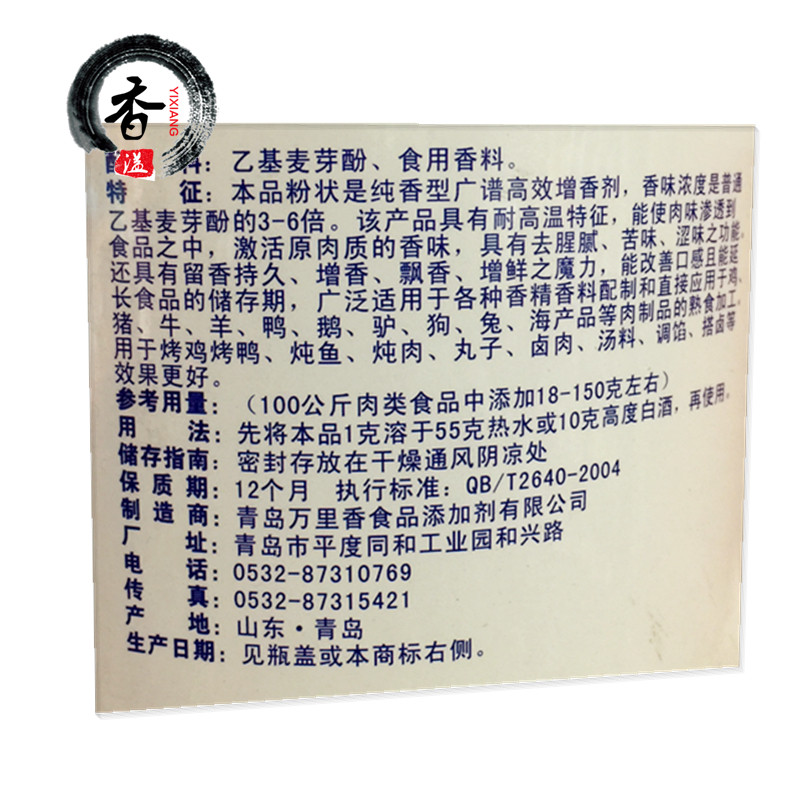 香
溢
YIXIANG
料：乙基麦芽酚、食用香料。
特 征：本品粉状是纯香型广谱高效增香剂，香味浓度是普通
乙基麦芽酚的3-6倍。该产品具有耐高温特征，能使肉味渗透到
食品之中，激活原肉质的香味，具有去腥腻、苦味、涩味之功能。
还具有留香持久、增香、飘香、增鲜之魔力，能改善口感且能延
长食品的储存期，广泛适用于各种香精香料配制和直接应用于鸡、
猪、牛、羊、鸭、鹅、驴、狗、兔、海产品等肉制品的熟食加工。
用于烤鸡烤鸭、炖鱼、炖肉、丸子、卤肉、汤料、调馅、搭卤等
效果更好。
参考用量：（100公斤肉类食品中添加18-150克左右）
用 法：先将本品1克溶于55克热水或10克高度白酒，再使用。
储存指南：密封存放在干燥通风阴凉处
保 质 期：12个月 执行标准：QB/T2640-2004
制 造 商：青岛万里香食品添加剂有限公司
厂 址：青岛市平度同和工业园和兴路
电 话：0532-87310769
传 真：0532-87315421
产 地：山东·青岛
生产日期：见瓶盖或本商标右侧。